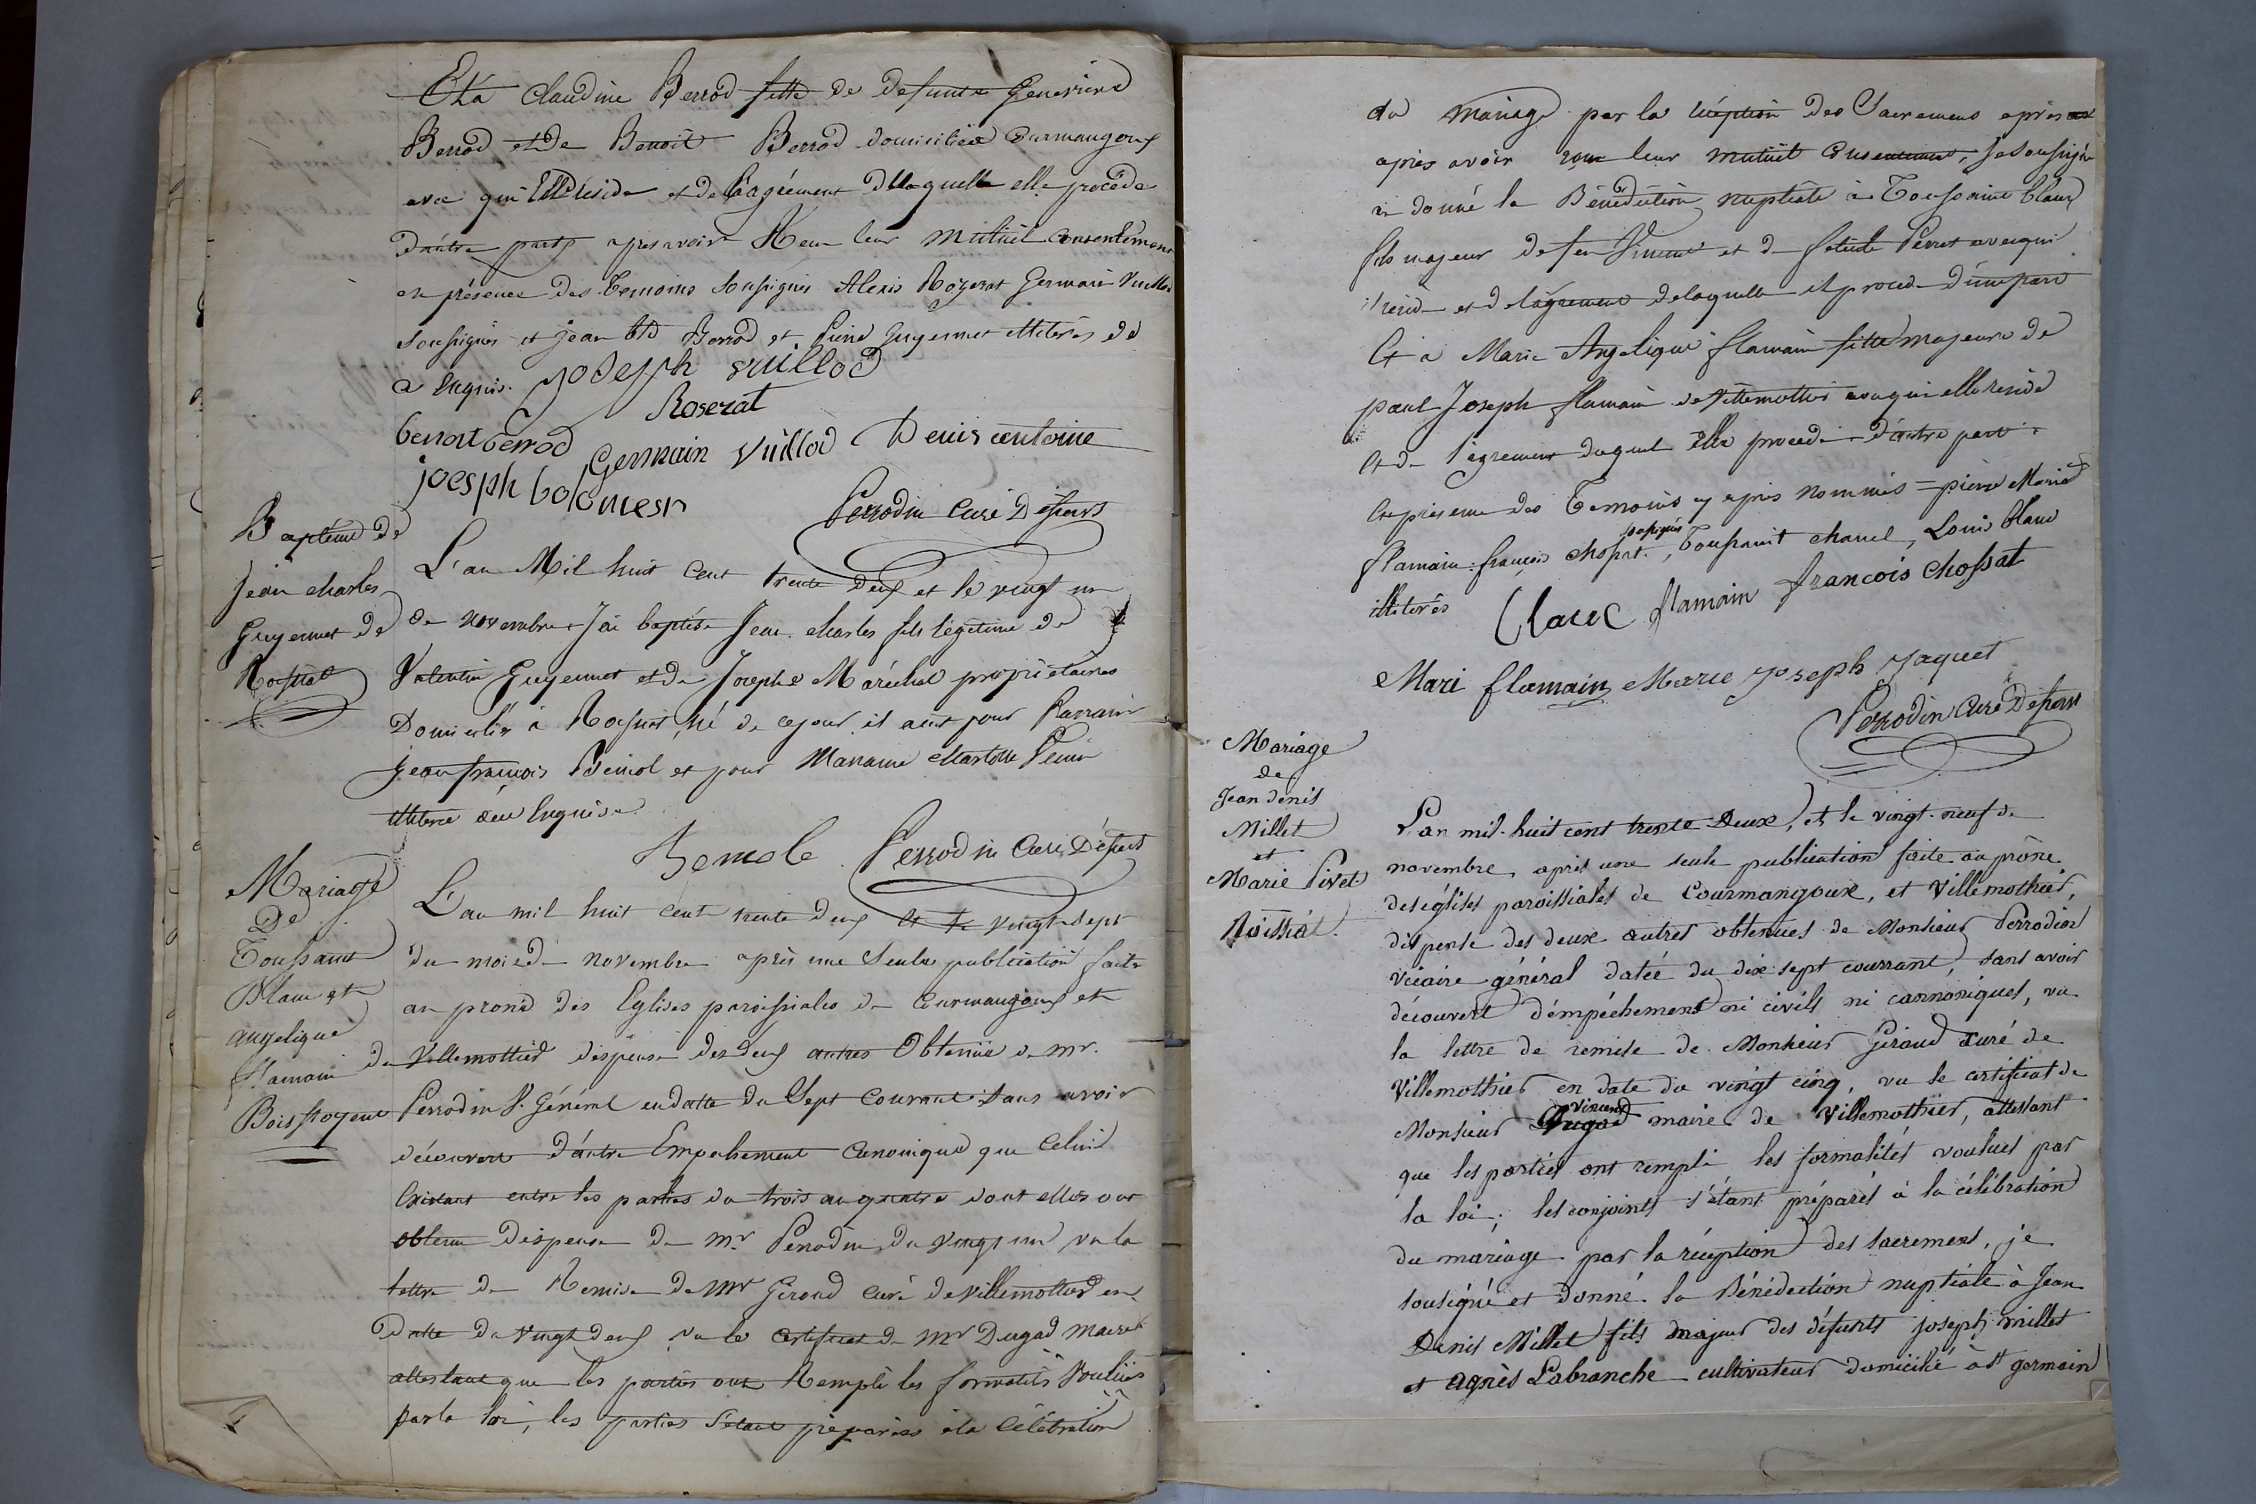 Et à Claudine Berrod fille de défunte Genevieve
Berrod et de Benoit Berrod domiciliée Courmangoux
avec qui Elle réside et de l'agrément de laquelle elle procède
d'autre part, apres avoir Reçu leur mutuel consentement
en présence des témoins soussignés Alexis Rozerat Germain Vuillod
soussignés et jean Bte Berrod et Pierre Guyennet illitérés de
ce Enquis. joseph vuillod
Rozerat
benoit berrod Germain Vuillod Denis antoine
joesph bolomier
Perrodin Curé Desserv
Baptême de
jean charles
Guyennet de
Rosnat
L'an Mil huit Cent trente Deux et le vingt un
de novembre J'ai baptisé Jean charles fils légitime de
Valentin Guyennet et de Josephe Maréchal propriétaires
Domiciliés à Rosnat, né de ce jour il a eu pour Parrain
jean françois Bemol et pour Maraine charlotte Perrin
illitérée de ce Enquise.
Bemole Perrodin Curé Desserv
Mariage
De
Toussaint
Blanc et
angelique
flamain de
Boisfroyent
L'an mil huit cent trente deux et le vingt sept
du mois de novembre après une seule publication faite
au prone des Eglises paroissiales de Courmangoux et
Villemottier dispense des deux autres Obtenue de mr.
Perrodin V. Général en datte du Sept Courant sans avoir
découvert d'autre Empechement Canonique que Celui
Existant entre les parties du trois au quatre dont elles ont
obtenu dispense de mr Perrodin du vingt un vu la
lettre de Remise de Mr Giroud curé de Villemottier en
Datte du vingt deux, vu le certificat de mr Dugad Maire
attestant que les parties ont Rempli les formalités Voulues
par la loi, les parties s'étant préparées à la Célébration
du mariage par la réception des Sacremens après
après avoir reçu leur mutuel Consentement, je soussigné
ai donné la Bénédiction nuptiale à Toussaint blanc
fils majeur de feu Vincent et de Perret avec qui
il réside et de l'agrément de laquelle il procede d'une part
Et à Marie Angelique flamain fille majeure de
paul Joseph flamain de Villemottier avec qui elle reside
Et de l'agrement duquel elle procede d'autre part.
En présence des Temoins cy après nommés = pierre Marie
soussignés
flamain, françois chossat, Toussaint chanel, Louis blanc
illitérés Clarc flamain francois chossat
Mari flamain Marie joseph jaquet
Perrodin Curé Desserv
Mariage
de
Jean denis
Millet
et
Marie Pivet
Roissiat.
L'an mil huit cent trente deux, et le vingt-neuf de
novembre, après une seule publication faite au prône
des églises paroissiales de Courmangoux, et Villemothier,
dispense des deux autres obtenues de Monsieur Perrodin
vicaire général datée du dix sept courrant, sans avoir
découvert d'empéchement ni civils ni cannoniques, vu
la lettre de remise de Monsieur Giroud curé de
Villemothier en date du vingt cinq, vu le certificat de
vincent
Monsieur Dugad maire de Villemothier, attestant
que les parties ont rempli les formalités voulues par
la loi; les conjoints s'étant préparés à la célébration
du mariage par la réception des sacremens, je
sousigné et donné la Bénédiction nuptiale à Jean
Denis Millet fils majeur des défunts joseph millet
et agnès Labranche cultivateur domicilié à St germain